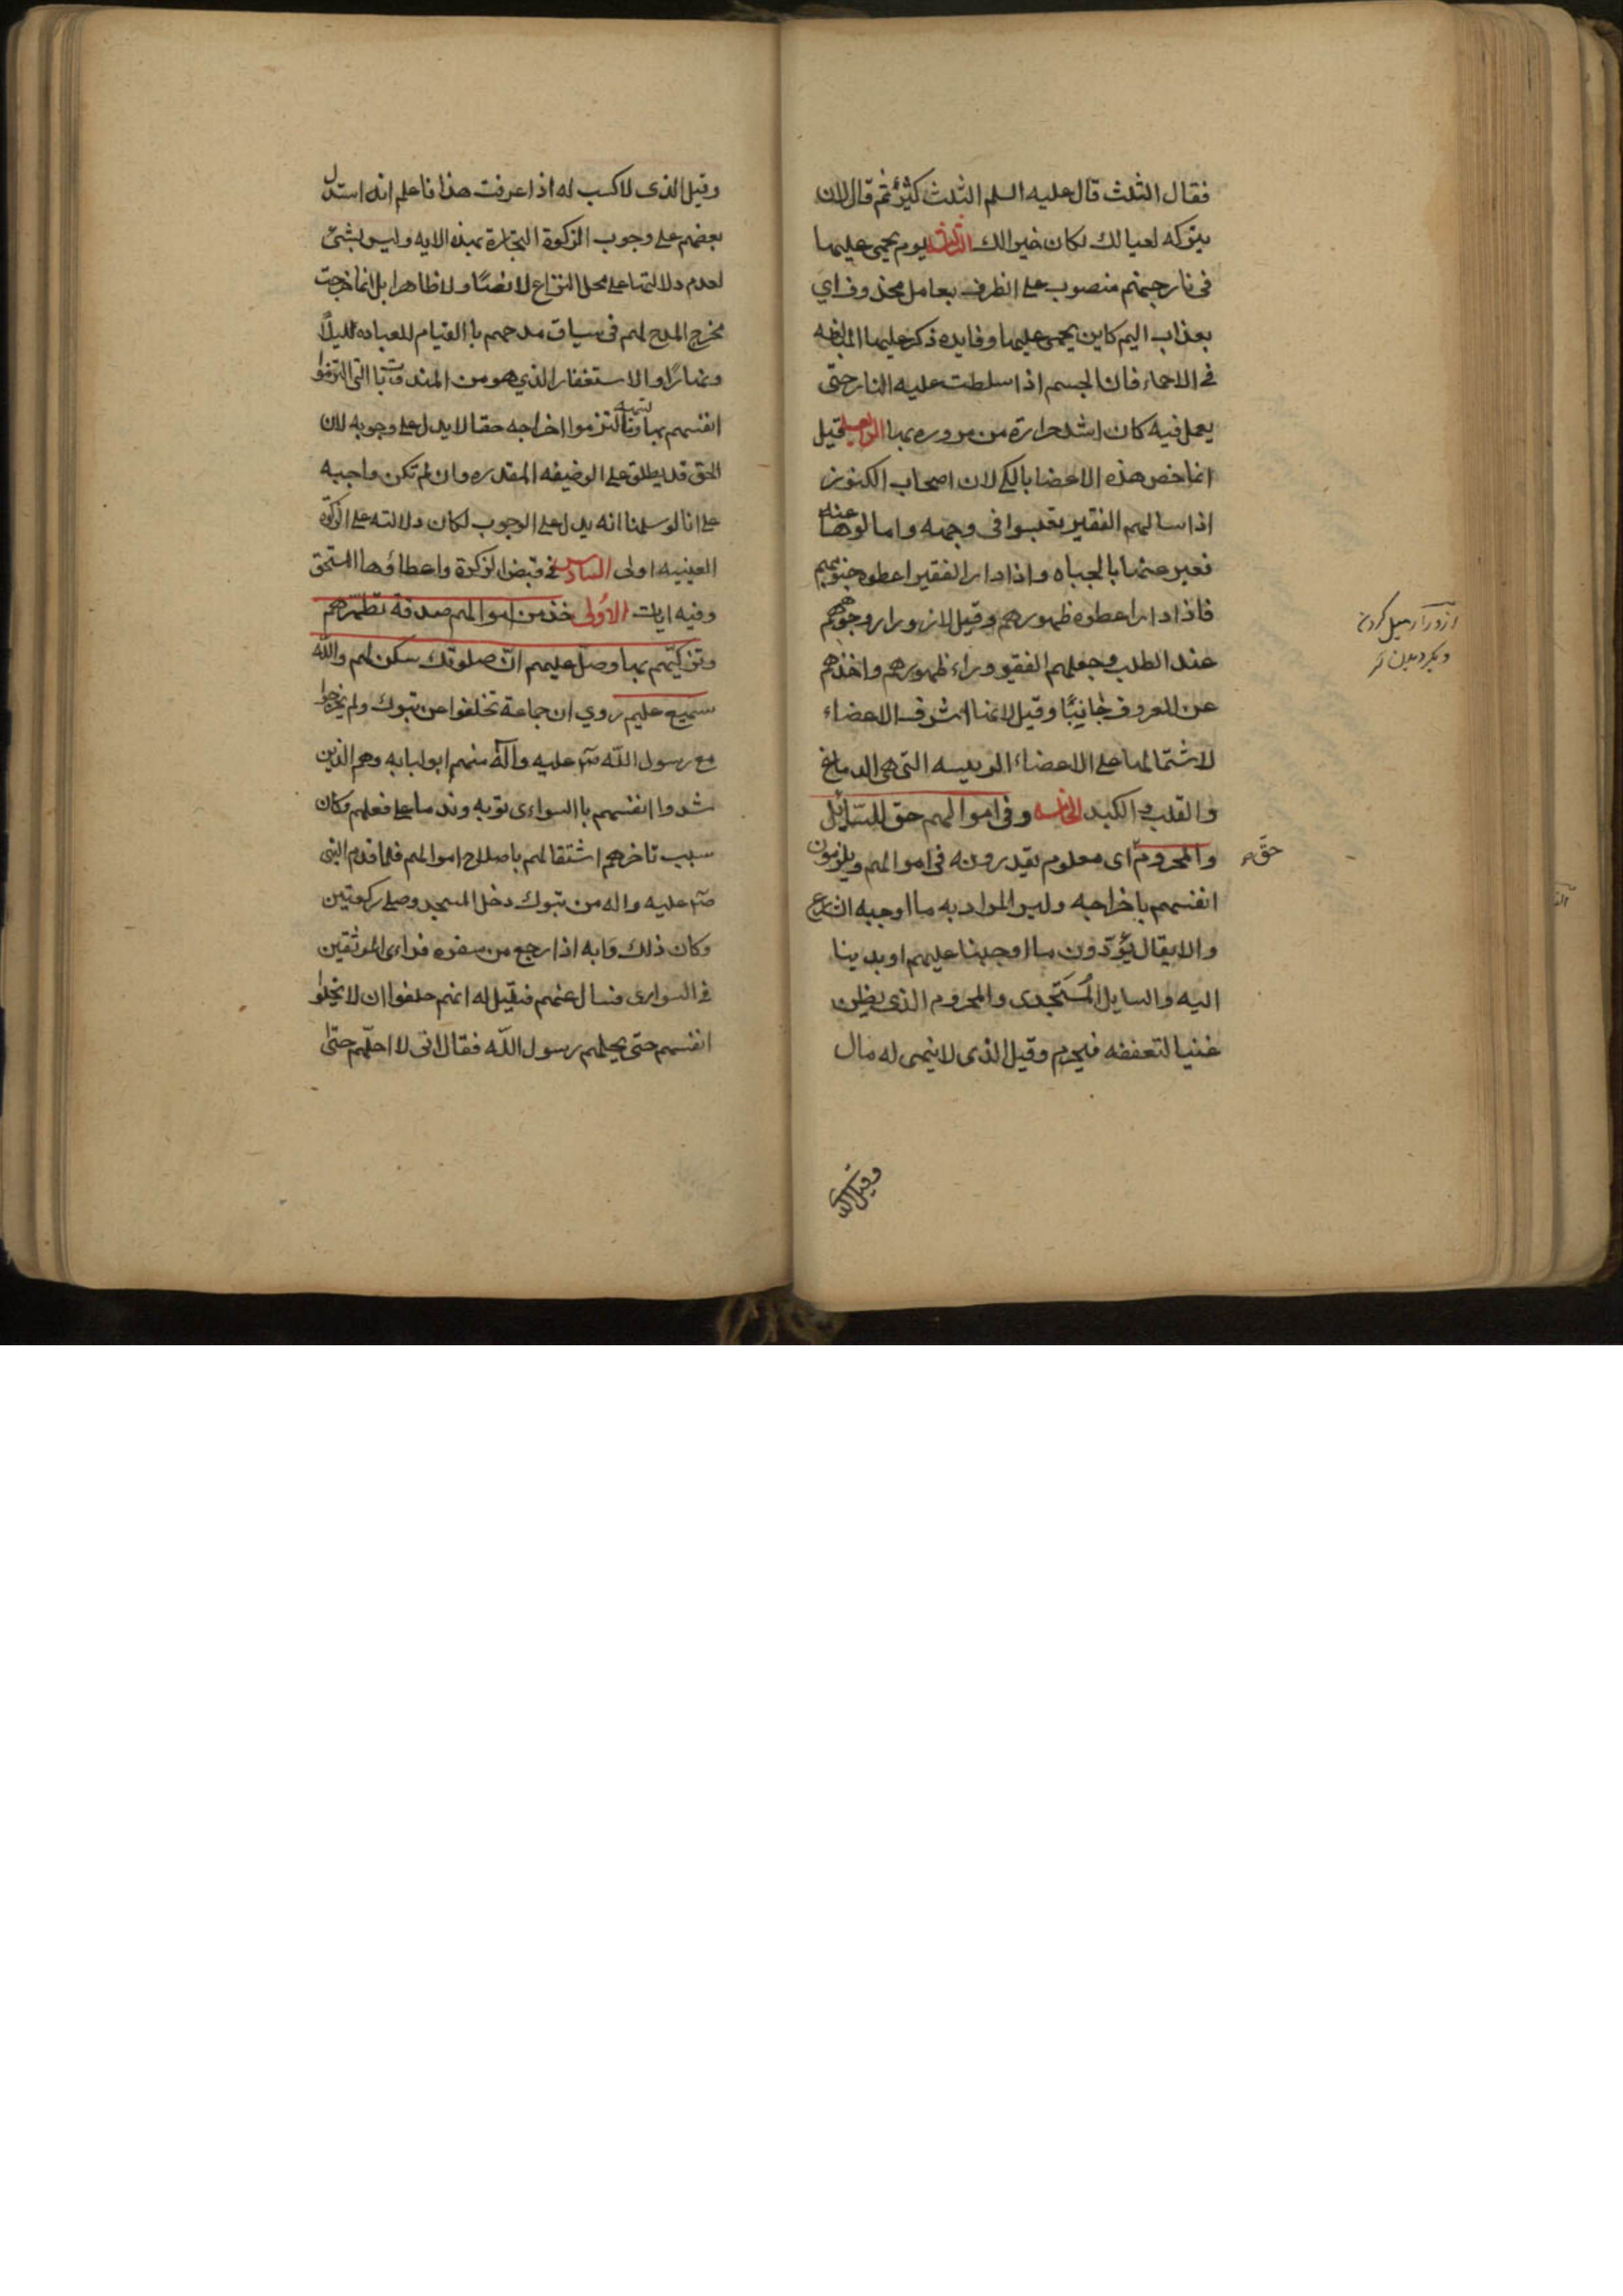 فقال الثلث قال عليه السلم الثلث كثيرٌ ثم قال لان
يتركه لعيالك لكان خيرا لك الثالثه يوم يحمى عليها
فى نار جهنم منصوب على الظرف بعامل محذوف اي
بعذاب اليم كاين يحمى عليها وفايده ذكر عليها المبالغه
فى الاحماء فان الجسم اذا سلطت عليه النار حتى
يعمل فيه كان اشد حرارة من مروره بها الرابعه قيل
انما خص هذه الاعضا بالكى لان اصحاب الكنوز
اذا سالهم الفقير يقلبوا فى وجهه وامالوها عنه
فعبر عنها بالجباه واذا دار الفقير اعطوه جنوبهم
فاذا دار اعطوه ظهورهم وقيل لازورار وجوههم
عند الطلب وجعلهم الفقير وراء ظهورهم واخذهم
عن المعروف جٰانبًا وقيل لانها اشرف الاعضاء
لاشتمالها على الاعضاء الرييسه التى هى الدماغ
والقلب والكبد الخامسه وفى اموالهم حق للسّائل
والمحروم اى معلوم يقدرونه فى اموالهم ويلزمون
انفسهم باخراجه وليس المراد به ما اوجبه الشارع
والا يقال يؤدّون ما اوجبنا عليهم او يدينا
اليه والسايل المُستَجدى والمحروم الذى يظن
غنيا لتعففه فيحرم وقيل الذى لا ينمى له مال
ازورار ميل كردن
حقّ
وقيل الذى
وقيل الذى لا كسب له اذا عرفت هذا فاعلم انه استدل
بعضهم على وجوب الزكوة التجارة بهذه الايه وليس بشئ
لعدم دلالتها على محل النزاع لا نصًا ولا ظاهرا بل انما خرجت
مخرج المدح لهم فى سياق مدحهم باالقيام للعباده لليلًا
ونهارًا والاستغفار الذي هو من المندوبات التى التزموا
انفسهم بها التزموا اخراجه حقا لا يدل على وجوبه لان
الحق قد يطلق على الوضيفه المقدره وان لم تكن واجبه
على انا لو سلمنا انه يدل على الوجوب لكان دلالته على الزكوة
العينيه اولى السادس فى قبض الزكوة واعطاؤها المستحق
وفيه ايات الاُولى خذ من اموالهم صدقة تطهّرهم
وتزكيّهم بها وصلّ عليهم انّ صلوتك سكن لهم والله
سميع عليم روي ان جماعة تخلفوا عن تبوك ولم يخرجوا
مع رسول الله صَ عليه وآله منهم ابو لبابه وهم الذين
شدوا انفسهم باالسوارى توبه وندما على فعلهم وكان
سبب تاخرهم اشتقالهم باصلاح اموالهم فلما قدم النبى
صَ عليه واله من تبوك دخل المسجد وصلى ركعتين
وكان ذلك دَابه اذا رجع من سفره فراى الموثقين
فى السوارى فسال عنهم فقيل له انهم حلفوا ان لا يحلوا
انفسهم حتى يحلهم رسول الله فقال انى لا احلّهم حتّى